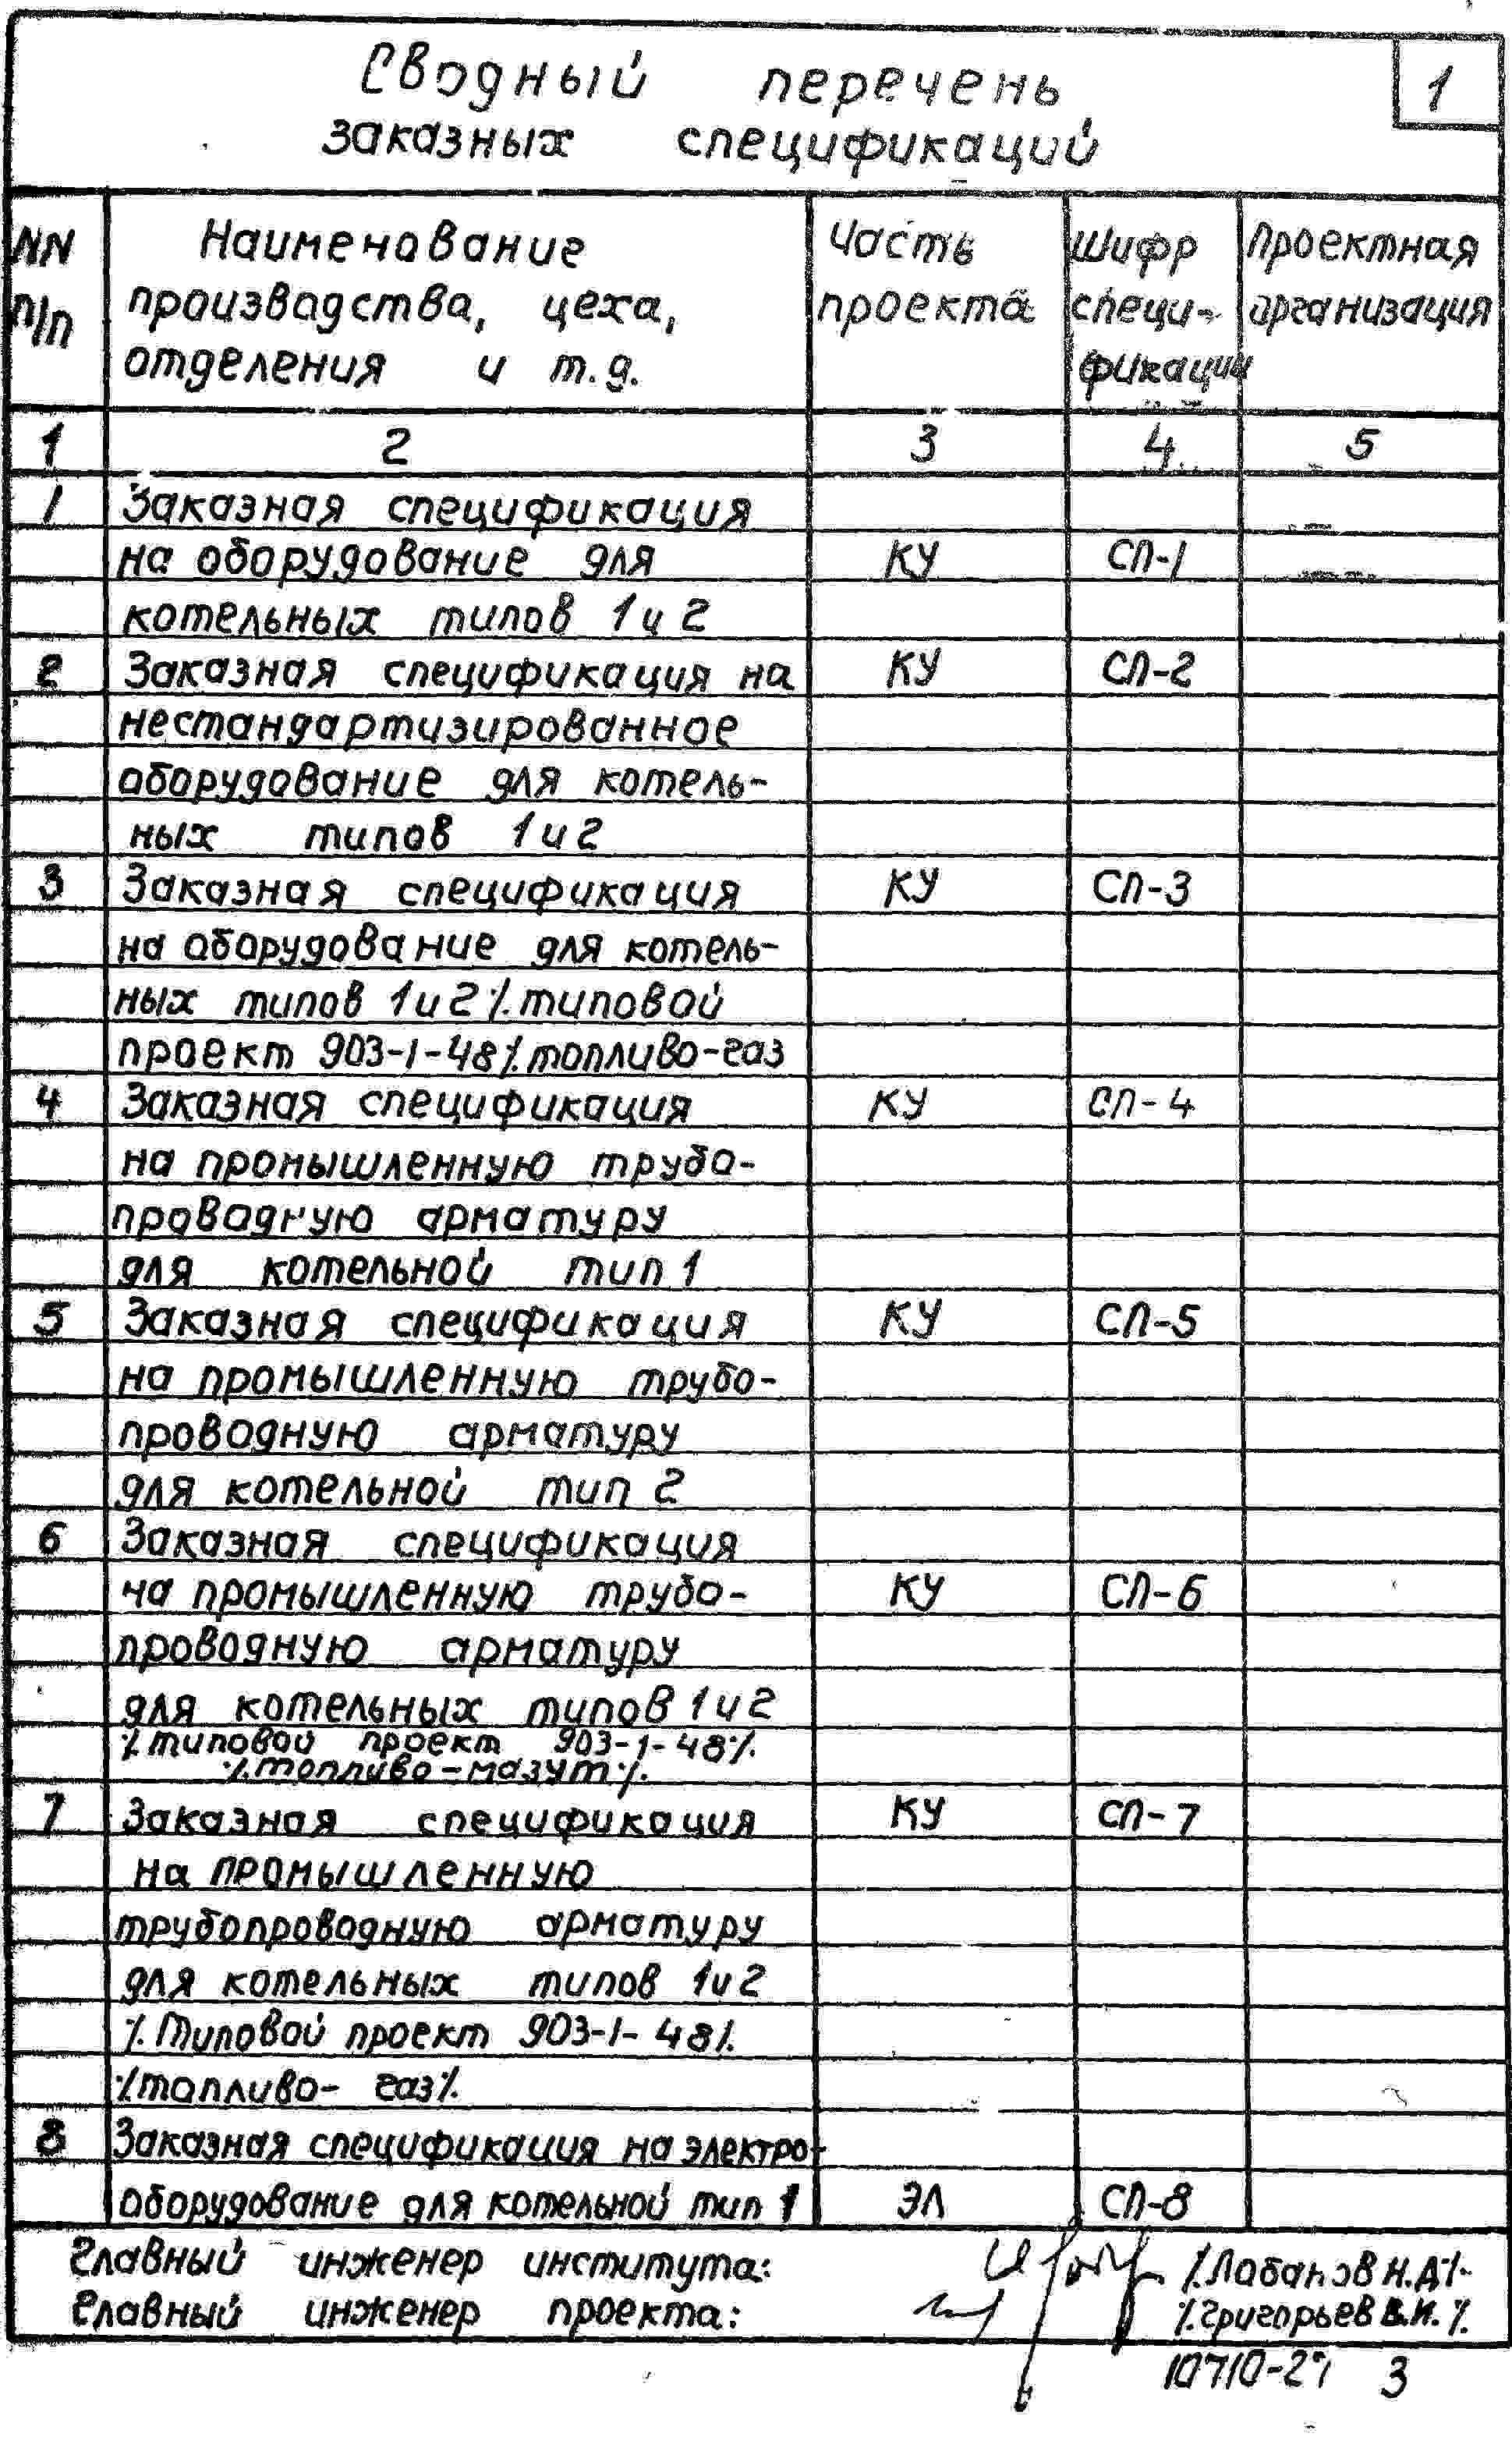 Сводный перечень
1
заказных спецификаций
NN п/п
Наименование производства, цеха, отделения и т.д.
Часть проекта
Шифр специ-фикации
Проектная организация
1 2 3 4 5
1 Заказная спецификация
на оборудование для КУ СП-1
котельных типов 1 и 2
2 Заказная спецификация на КУ СП-2
нестандартизированное
оборудование для котель-
ных типов 1 и 2
3 Заказная спецификация КУ СП-3
на оборудование для котель-
ных типов 1 и 2 ٪типовой
проект 903-1-48٪ топливо-газ
4 Заказная спецификация КУ СП-4
на промышленную трубо-
проводную арматуру
для котельной тип 1
5 Заказная спецификация КУ СП-5
на промышленную трубо-
проводную арматуру
для котельной тип 2
6 Заказная спецификация
на промышленную трубо- КУ СП-6
проводную арматуру
для котельных типов 1 и 2
٪типовой проект 903-1-48٪
٪топливо-мазут٪
7 Заказная спецификация КУ СП-7
на промышленную
трубопроводную арматуру
для котельных типов 1 и 2
٪Типовой проект 903-1-48٪
٪топливо- газ٪
8 Заказная спецификация на электро-
оборудование для котельной тип 1 ЭЛ СП-8
Главный инженер института: ٪Лобанов Н.Д.٪
Главный инженер проекта: ٪Григорьев В.И.٪
10710-27 3